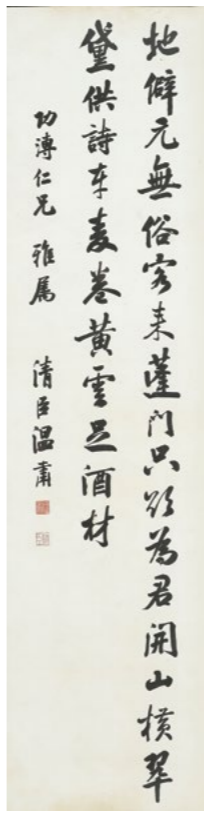 地僻元無俗客来蓬門只欲為君開山橫翠
黛供詩本麥卷黃雲足酒材
功溥仁兄 雅属 清臣温肅